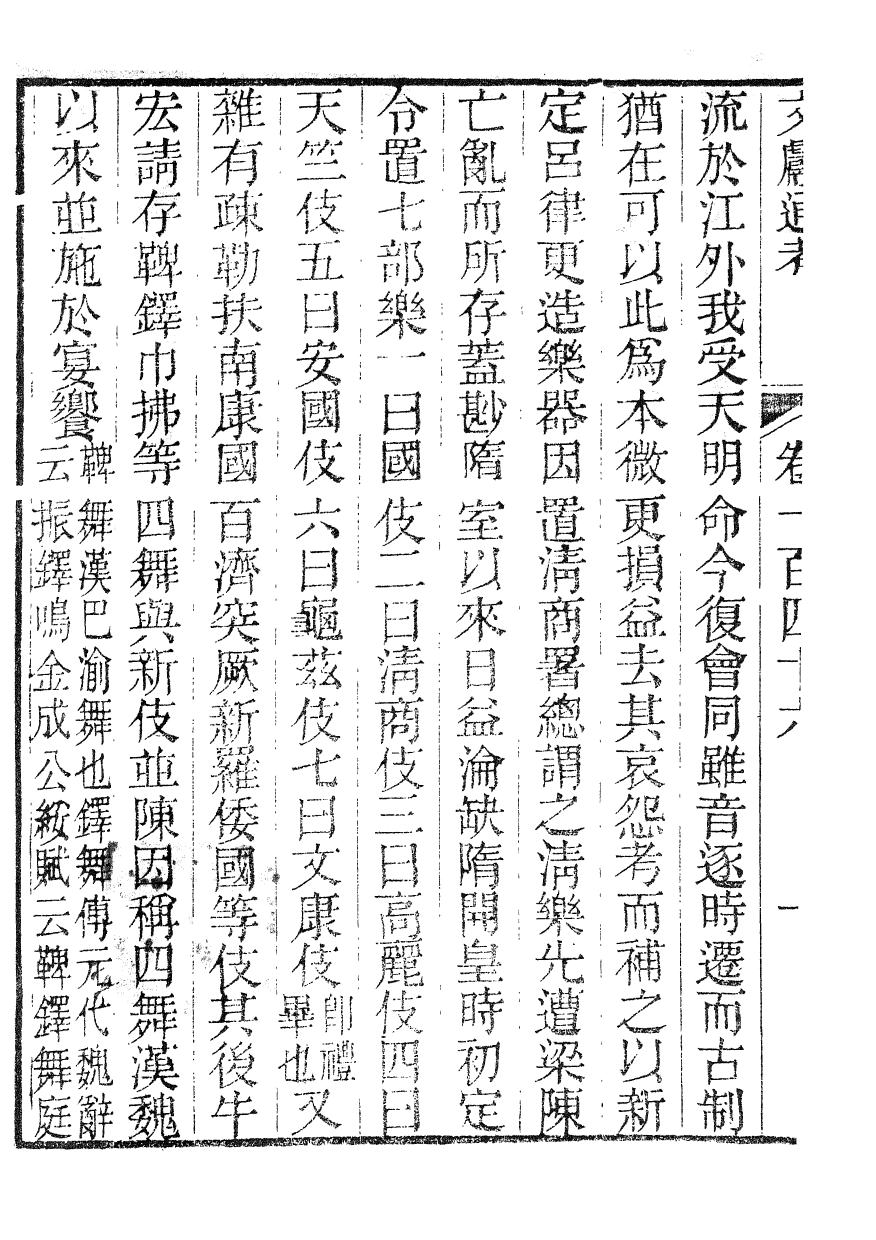 文獻通考 卷一百四十六 一
流於江外我受天明命今復會同雖音逐時遷而古制
猶在可以此爲本微更損益去其哀怨考而補之以新
定呂律更造樂器因置清商署總謂之清樂先遭梁陳
亡亂而所存蓋尠隋室以來日益淪缺隋開皇時初定
令置七部樂一曰國伎二曰清商伎三曰高麗伎四曰
天竺伎五曰安國伎六曰龜茲伎七曰文康伎卽禮畢也又
雜有疎勒扶南康國百濟突厥新羅倭國等伎其後牛
宏請存鞞鐸巾拂等四舞與新伎並陳因稱四舞漢魏
以來並施於宴饗鞞舞漢巴渝舞也鐸舞傅元代魏辭
云振鐸鳴金成公綏賦云鞞鐸舞庭